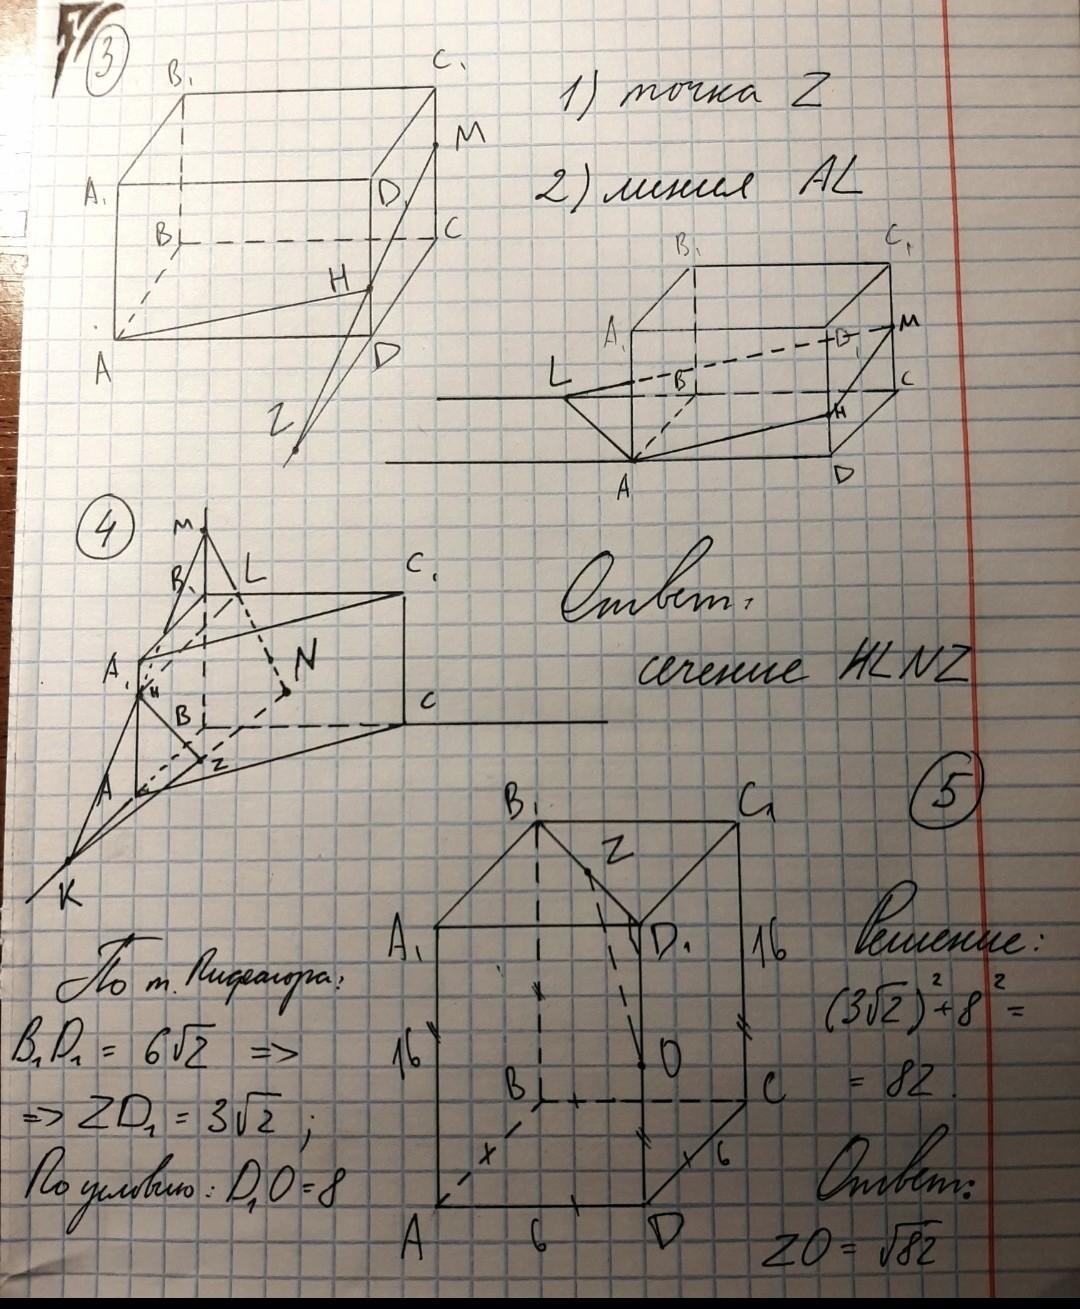 3
B₁
C₁
M
A₁
D₁
B
C
H
A
D
Z
1) точка Z
2) линия AL
B₁
C₁
A₁
D₁
M
L
B
C
H
A
D
4
M
B₁
L
C₁
A₁
H
N
B
C
Z
A
K
Ответ:
сечение HLNZ
5
B₁
C₁
Z
A₁
D₁
16
16
O
B
C
6
A
6
D
По т. Пифагора:
B₁D₁ = 6√2 =>
=> ZD₁ = 3√2 ;
По условию: D₁O = 8
Решение:
(3√2)² + 8² =
= 82.
Ответ:
ZO = √82